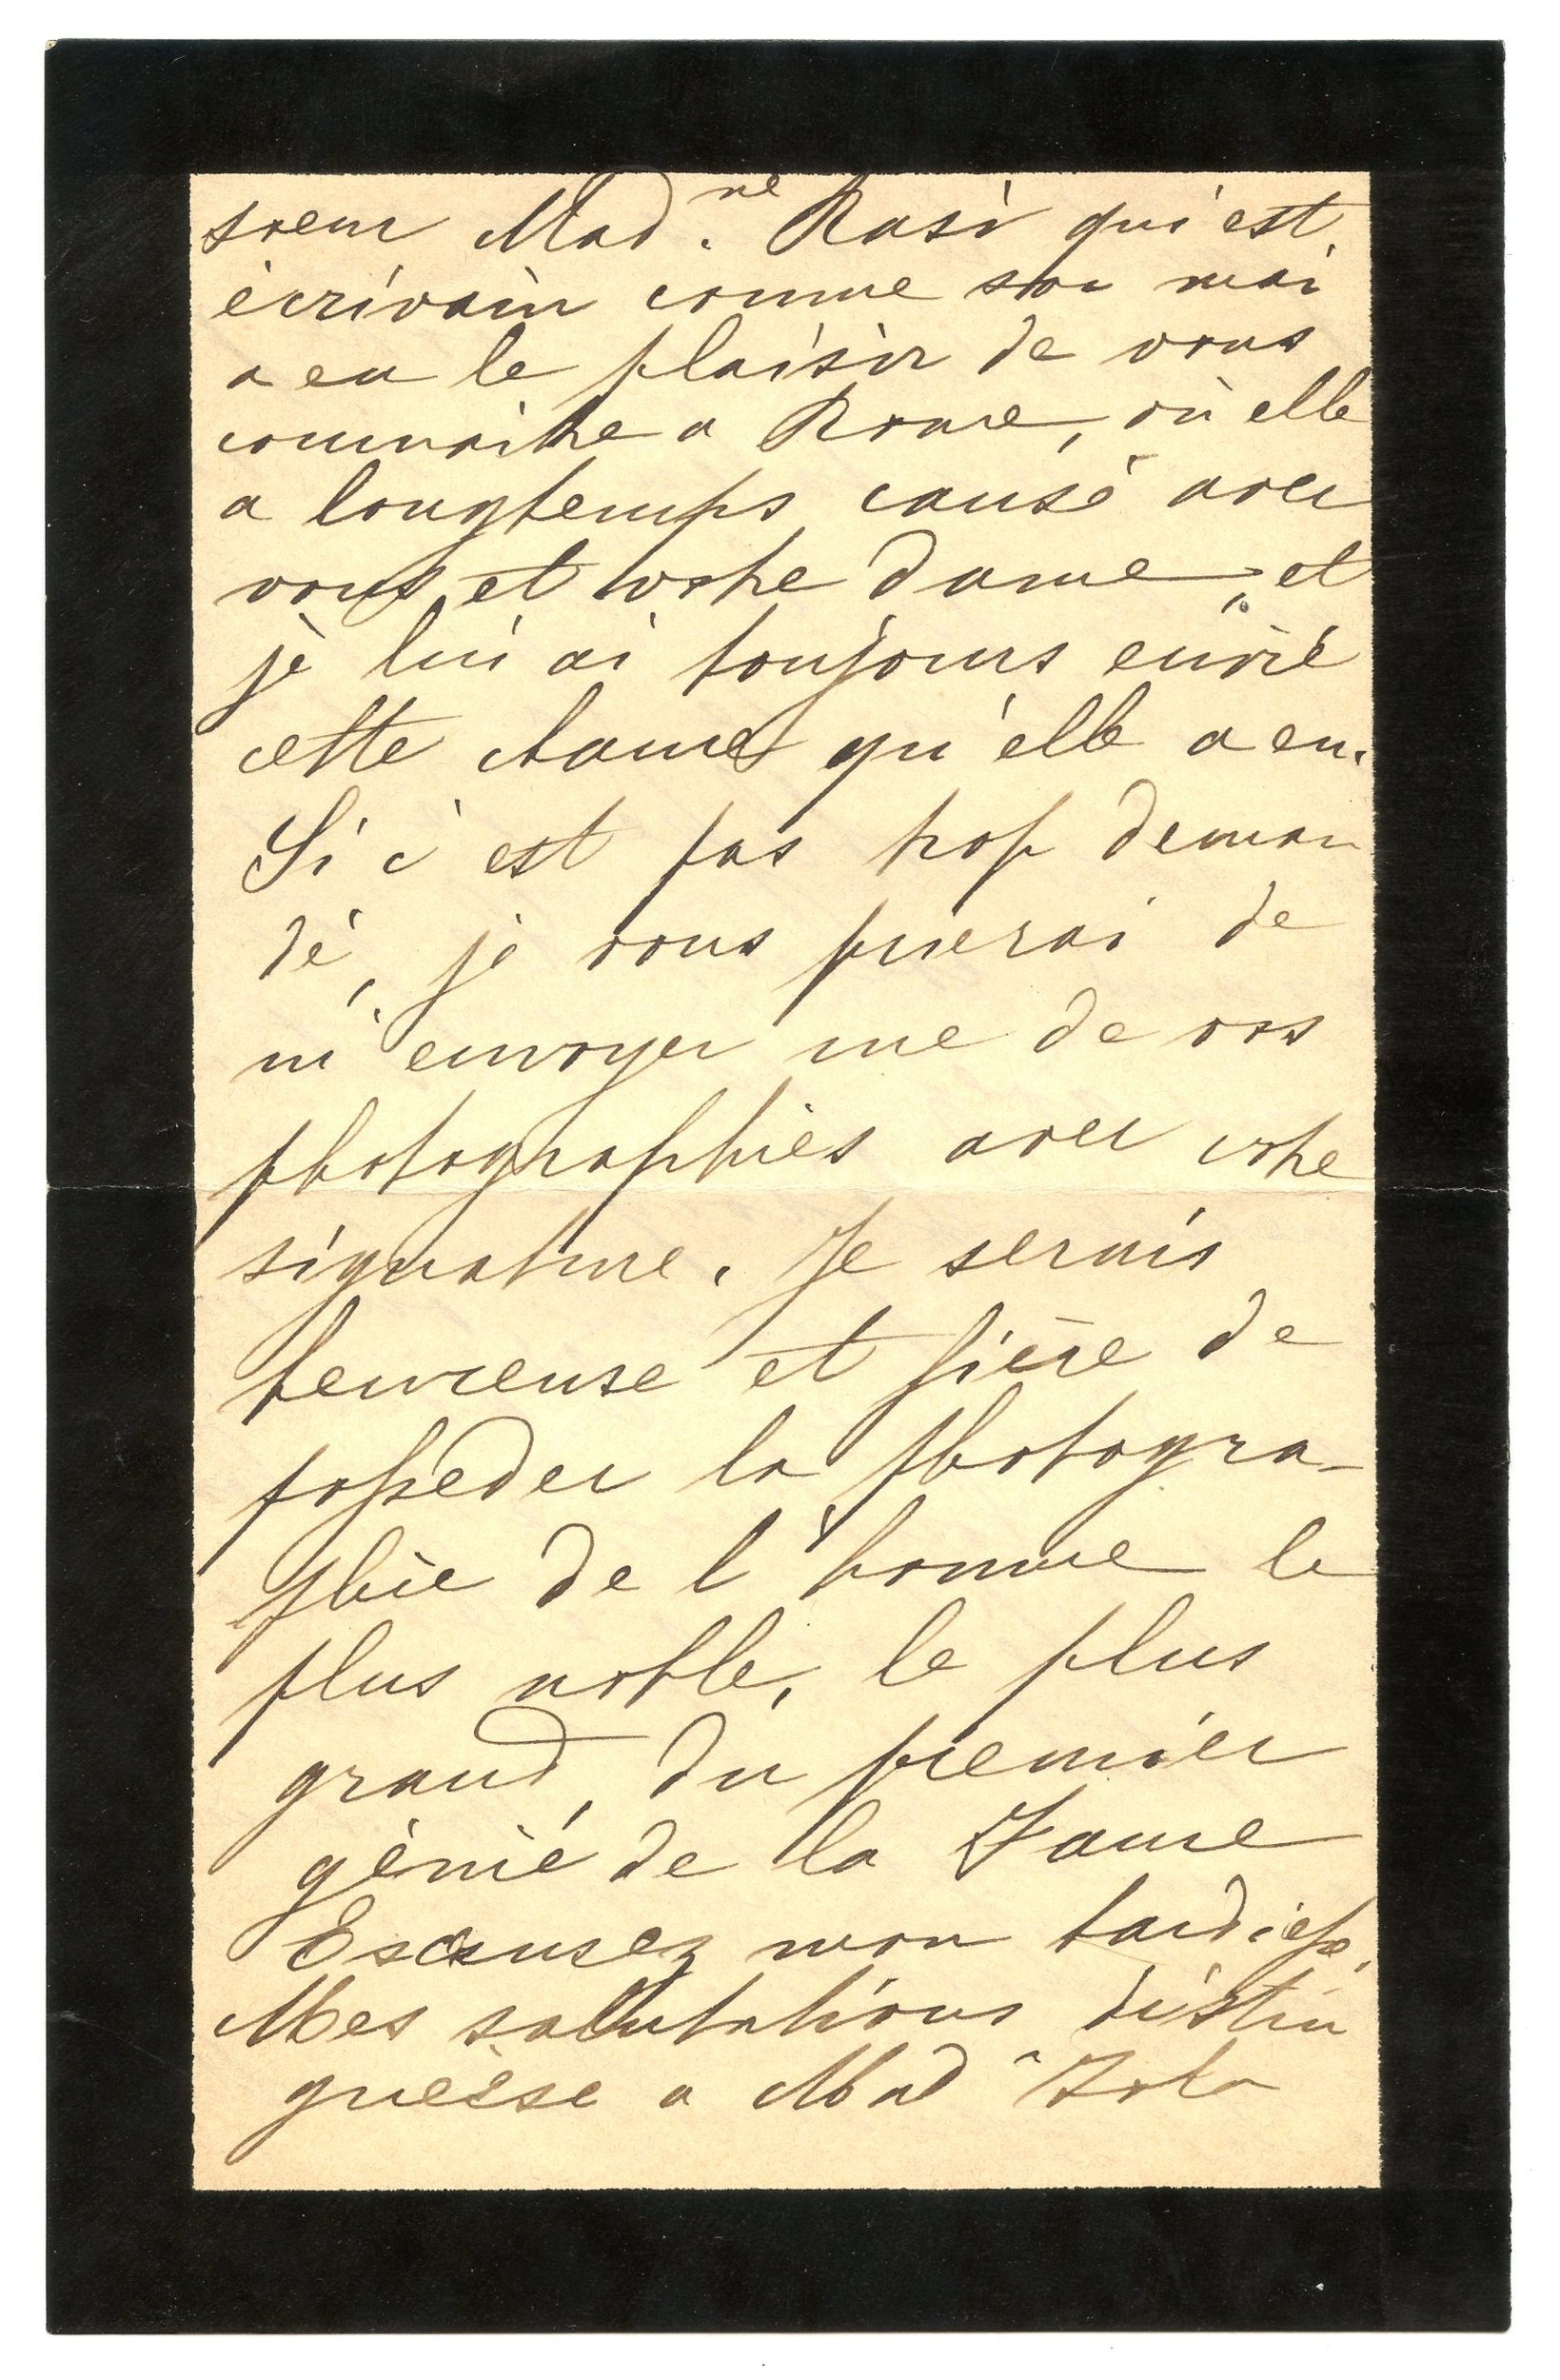 soeur Mad.me Rasi qui est
écrivain comme son mari
a eu le plaisir de vous
connaitre a Rome, où elle
a longtemps causé avec
vous et votre dame, et
je lui ai toujours envié
cette chance qu'elle a eu.
Si c'est pas trop deman
dé, je vous prierai de
m'envoyer une de vos
photographies avec votre
signature. Je serais
heureuse et fière de
posseder la photogra-
phie de l'homme le
plus noble, le plus
grand, du premier
génie de la France
Escusez mon hardiesse.
Mes salutations distin
gueèse a Mad Zola